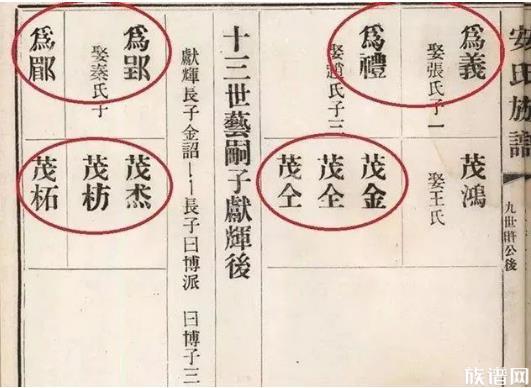 安氏族譜
九世時公後
爲義
娶張氏子一
爲禮
娶趙氏子三
茂鴻
娶王氏
茂金
茂仝
茂仝
十三世藝嗣子獻輝後
獻輝長子金詔
長子曰博派
曰博子三
爲郢
娶秦氏子
爲郿
茂杰
茂枋
茂柘
族谱网